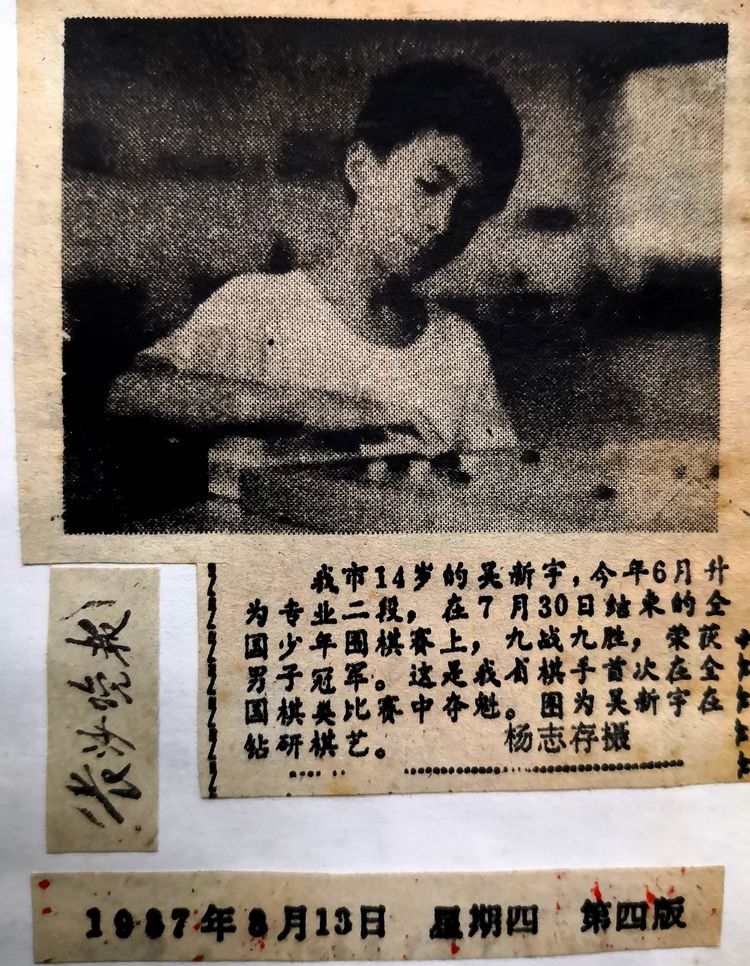 我市14岁的吴新宇，今年6月升
为专业二段，在7月30日结束的全
国少年围棋赛上，九战九胜，荣获
男子冠军。这是我省棋手首次在全
国棋类比赛中夺魁。图为吴新宇在
钻研棋艺。 杨志存摄
长沙晚报
1987年8月13日 星期四 第四版